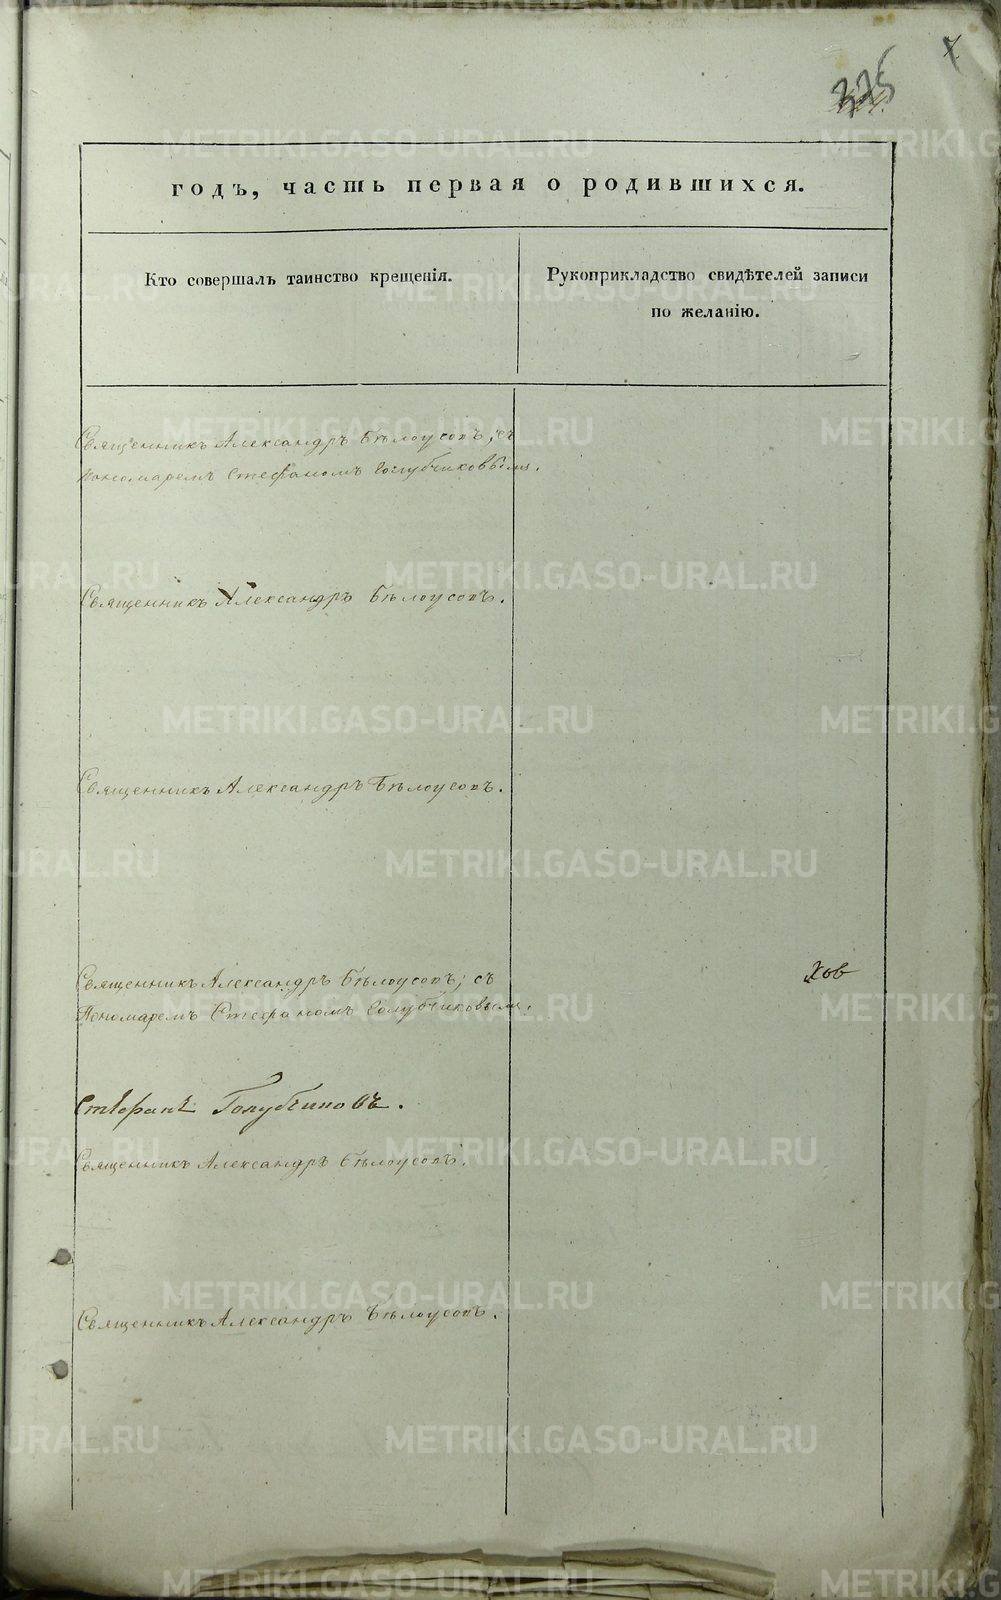 325
годъ, часть первая о родившихся.
Кто совершалъ таинство крещенія.
Рукоприкладство свидѣтелей записи
по желанію.
Священникъ Александръ Бѣлоусовъ, съ
Пономаремъ Стефаномъ Голубчиковымъ.
Священникъ Александръ Бѣлоусовъ.
Священникъ Александръ Бѣлоусовъ.
Священникъ Александръ Бѣлоусовъ; съ
Пономаремъ Стефаномъ Голубчиковымъ.
ков
Стефанъ Голубчиковъ.
Священникъ Александръ Бѣлоусовъ.
Священникъ Александръ Бѣлоусовъ.
METRIKI.GASO-URAL.RU